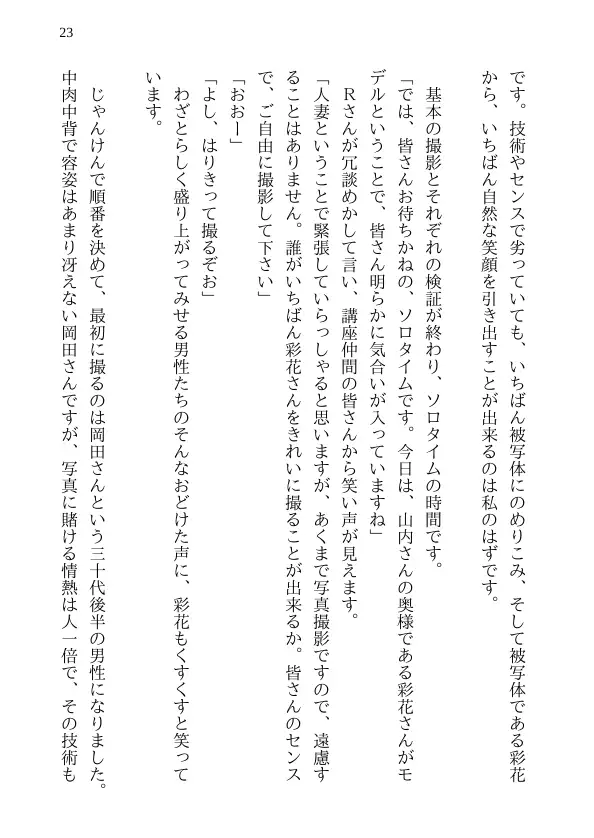 23
です。技術やセンスで劣っていても、いちばん被写体にのめりこみ、そして被写体である彩花
から、いちばん自然な笑顔を引き出すことが出来るのは私のはずです。
基本の撮影とそれぞれの検証が終わり、ソロタイムの時間です。
「では、皆さんお待ちかねの、ソロタイムです。今日は、山内さんの奥様である彩花さんがモ
デルということで、皆さん明らかに気合いが入っていますね」
Rさんが冗談めかして言い、講座仲間の皆さんから笑い声が見えます。
「人妻ということで緊張していらっしゃると思いますが、あくまで写真撮影ですので、遠慮す
ることはありません。誰がいちばん彩花さんをきれいに撮ることが出来るか。皆さんのセンス
で、ご自由に撮影して下さい」
「おおー」
「よし、はりきって撮るぞお」
わざとらしく盛り上がってみせる男性たちのそんなおどけた声に、彩花もくすくすと笑って
います。
じゃんけんで順番を決めて、最初に撮るのは岡田さんという三十代後半の男性になりました。
中肉中背で容姿はあまり冴えない岡田さんですが、写真に賭ける情熱は人一倍で、その技術も